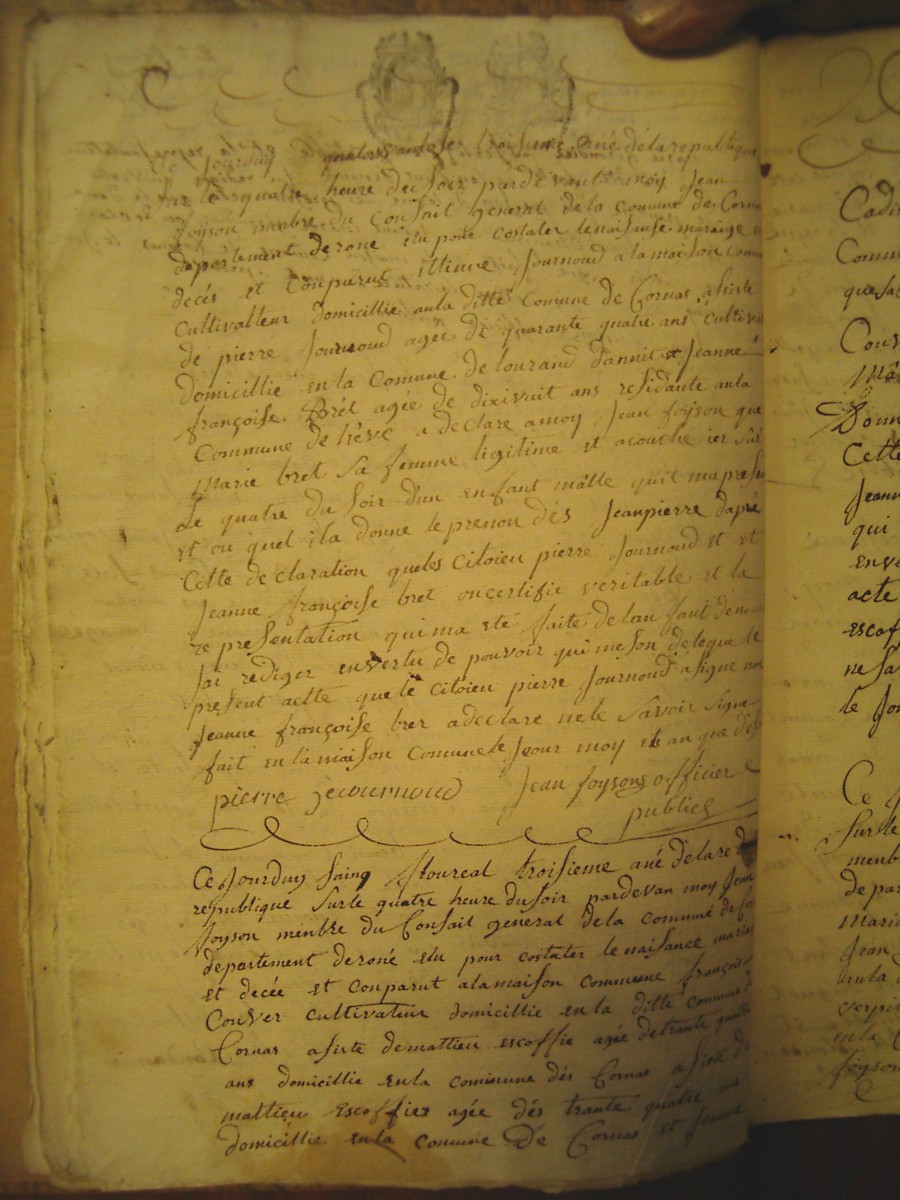 jourduy quatorse troisieme ané dela republique
sur le quatre heure du soir pardevant moy Jean
foyson menbre du Consait general de la comune de Corna
departement de rone élu pour costater le naisanse mariage
decés et Conparut ittienne Journoud a la maison Comu
Cultivatteur domicillie aula ditte Comune de Cornas asiste
de pierre Journoud agée de quarante quatre ans Cultiva
domicillié en la Comune de tourand et Jeanne
françoise Brét agée de dixivuit ans residante aula
Commune de a declare amoy Jean foyson que
Marie bret sa femme ligitime et acouche ier sur
Le quatre du soir d'un enfant malle quil ma presen
et ou quel ila donne le prenon dés Jeanpierre dapré
Cette declaration queles Citoien pierre Journoud et et
Jeanne françoise bret oncertifie veritable et la
representation quima eté faite delan fant denom
Jai rediger envertu de pouvoir qui meson delegue le
present actte que le Citoien pierre Journoud asigne non
Jeanne françoise brer adeclare nele savoir signe
fait en la maison Comune le Jour moy et an que des
pierre jeournoud Jean foysons officier
publics
Ce Jourduy sainq floureal troisieme ané delare
republique surle quatre heure dusoir pardevan moy Jean
foyson menbre du Consait general dela commune de Cor
departement de roné élu pour costater le naisance maria
et decée et Conparut alamaison commune françois
Couver cultivateur domicillie enla ditte commune
Cornas asiste demattieu escoffie agée detrante quatre
ans domicillie enla commune dés Cornas asiste de
mattieu Escoffier agée dés trante quatre ans
domicillie enla comune Dé Cornas et Jeanne
Cadi
Comm
quesa
Cous
Ma
Donn
Cette
Jeann
qui
enve
acte
escof
nesa
le Jou
Ce J
surle
menb
depar
Maria
Jean
enla
verpi
enla C
foyson